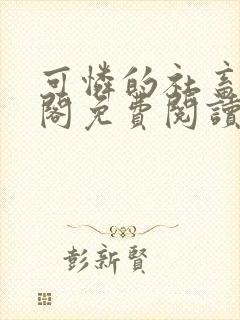 可憐的社畜
閣免費閱讀
彭新賢